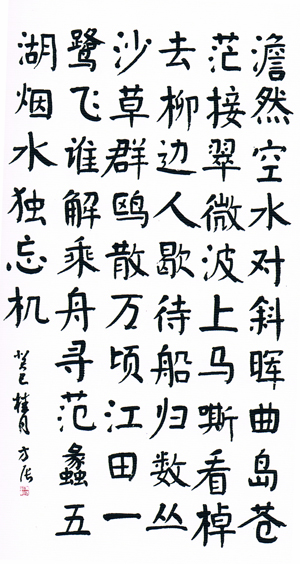 澹然空水对斜晖曲岛苍
茫接翠微波上马嘶看棹
去柳边人歇待船归数丛
沙草群鸥散万顷江田一
鹭飞谁解乘舟寻范蠡五
湖烟水独忘机
癸巳桂月方